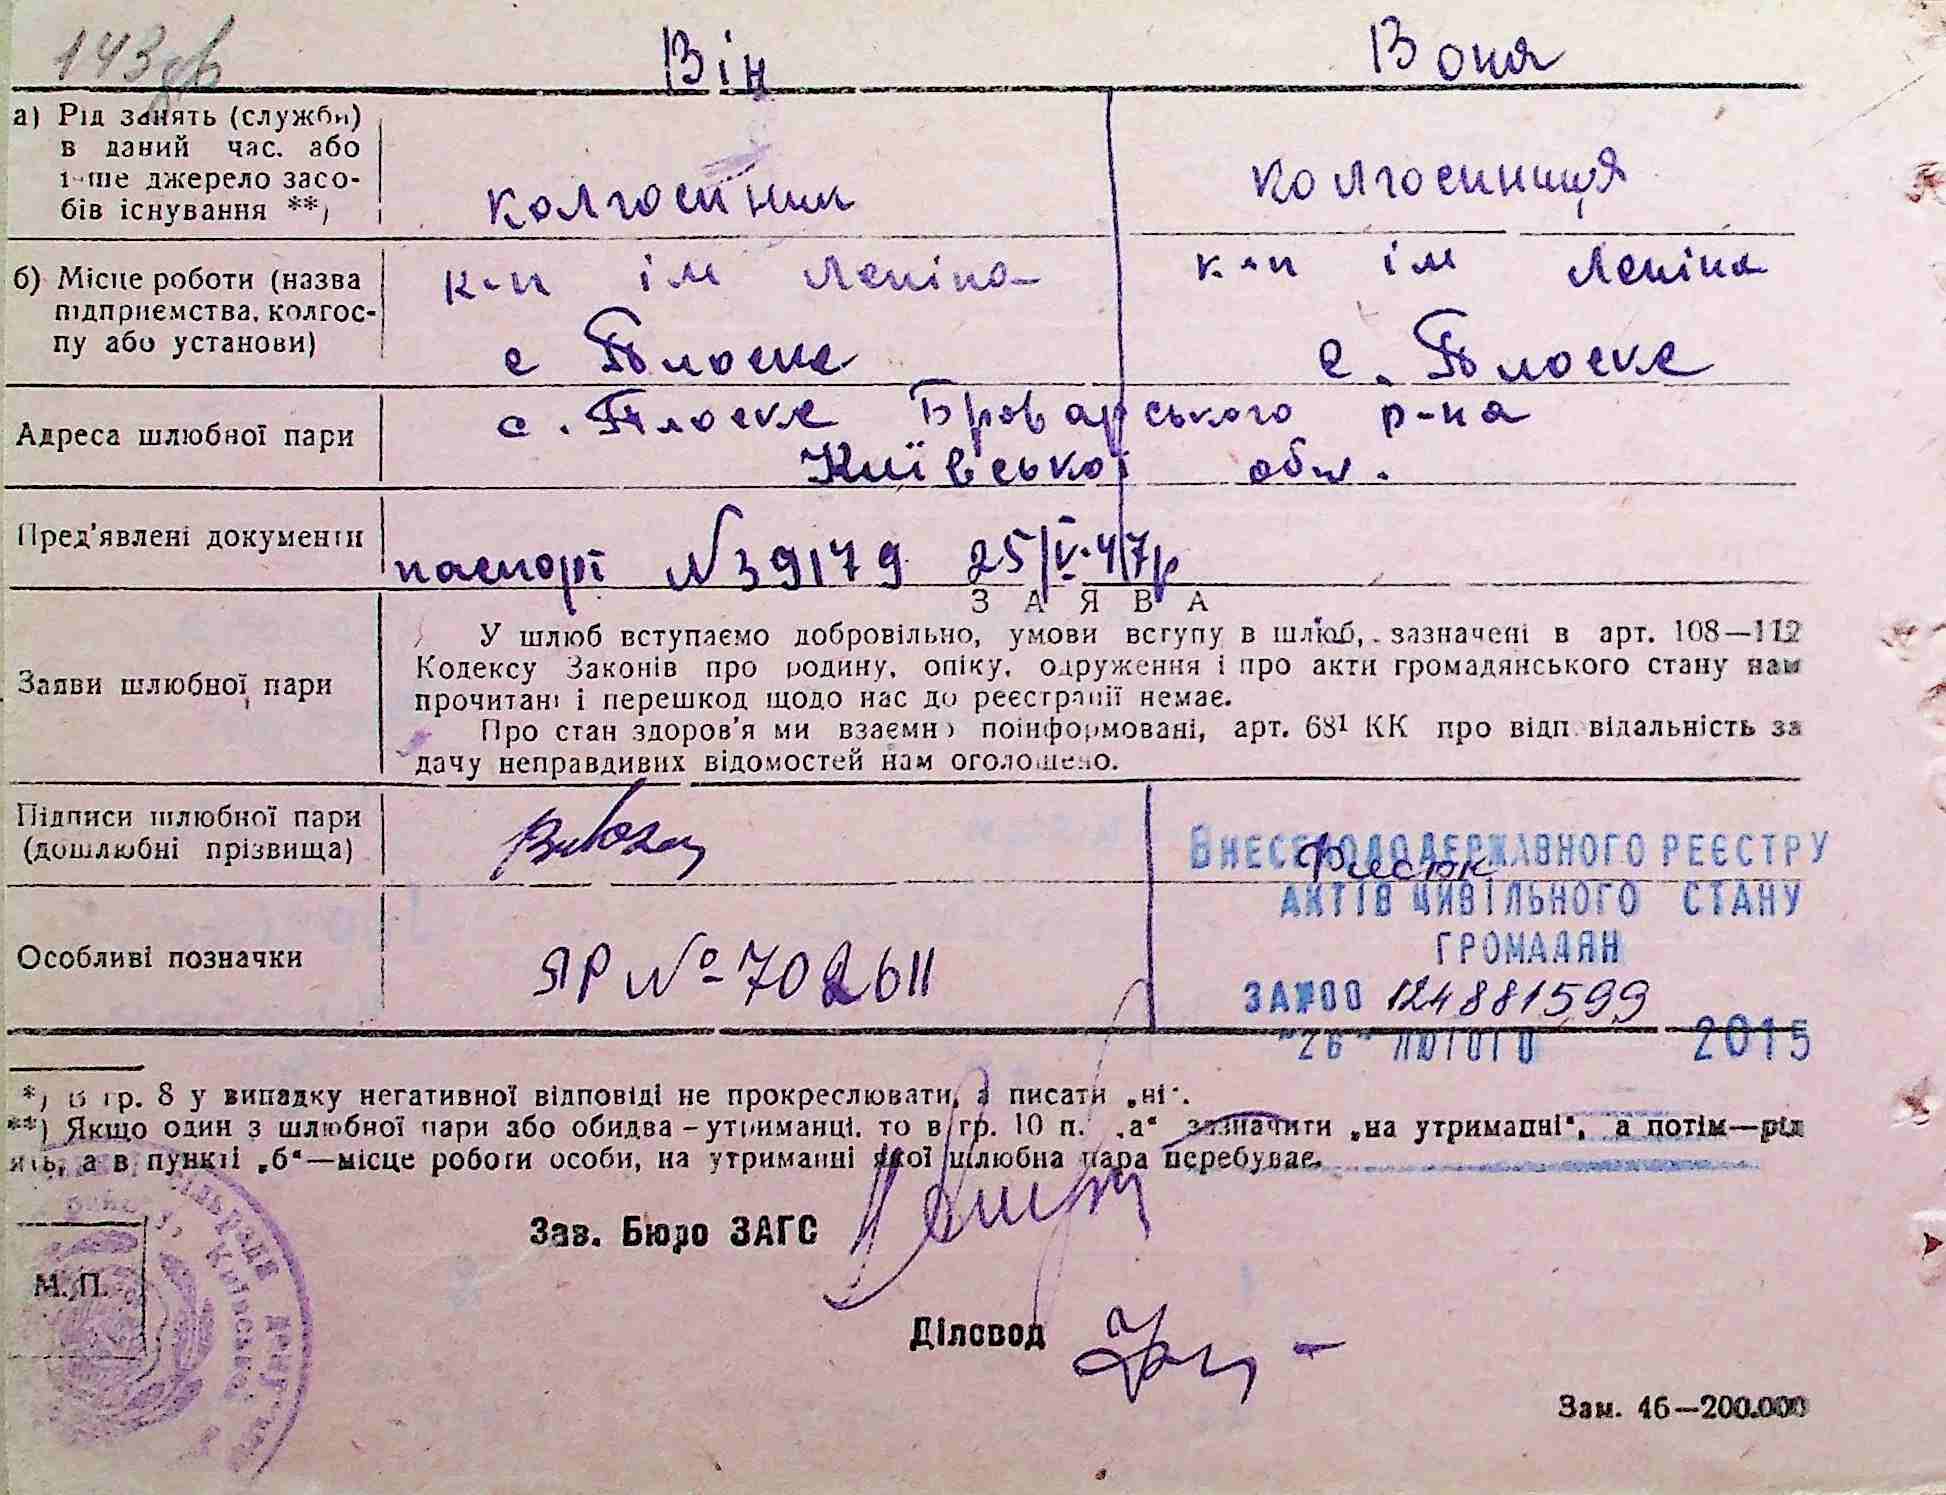 143
Він Вона
а) Рід занять (служби) в даний час. або інше джерело засо-бів існування **) колгоспник колгоспниця
б) Місце роботи (назва підприємства, колгос-пу або установи) к-п ім Леніна к-п ім Леніна
с Плоске с. Плоске
Адреса шлюбної пари с. Плоске Броварського р-на
Київської обл.
Пред'явлені документи паспорт N 39179 25/V-47р
З А Я В А
Заяви шлюбної пари
У шлюб вступаємо добровільно, умови вступу в шлюб, зазначені в арт. 108—112
Кодексу Законів про родину, опіку, одруження і про акти громадянського стану нам
прочитані і перешкод щодо нас до реєстрації немає.
Про стан здоров'я ми взаємно поінформовані, арт. 68¹ КК про відповідальність за
дачу неправдивих відомостей нам оголошено.
Підписи шлюбної пари
(дошлюбні прізвища)
ВНЕСЕНО ДО ДЕРЖАВНОГО РЕЄСТРУ
АКТІВ ЦИВІЛЬНОГО СТАНУ
ГРОМАДЯН
Особливі позначки ЯР № 702611
ЗА №00 124881599
"26" ЛЮТОГО 2015
*) В гр. 8 у випадку негативної відповіді не прокреслювати, а писати „ні".
**) Якщо один з шлюбної пари або обидва – утриманці, то в гр. 10 п. „а" зазначити „на утриманні", а потім—рід
ять, а в пункті „б"—місце роботи особи, на утриманні якої шлюбна пара перебуває.
Зав. Бюро ЗАГС
М. П.
Діловод
Зам. 46—200.000